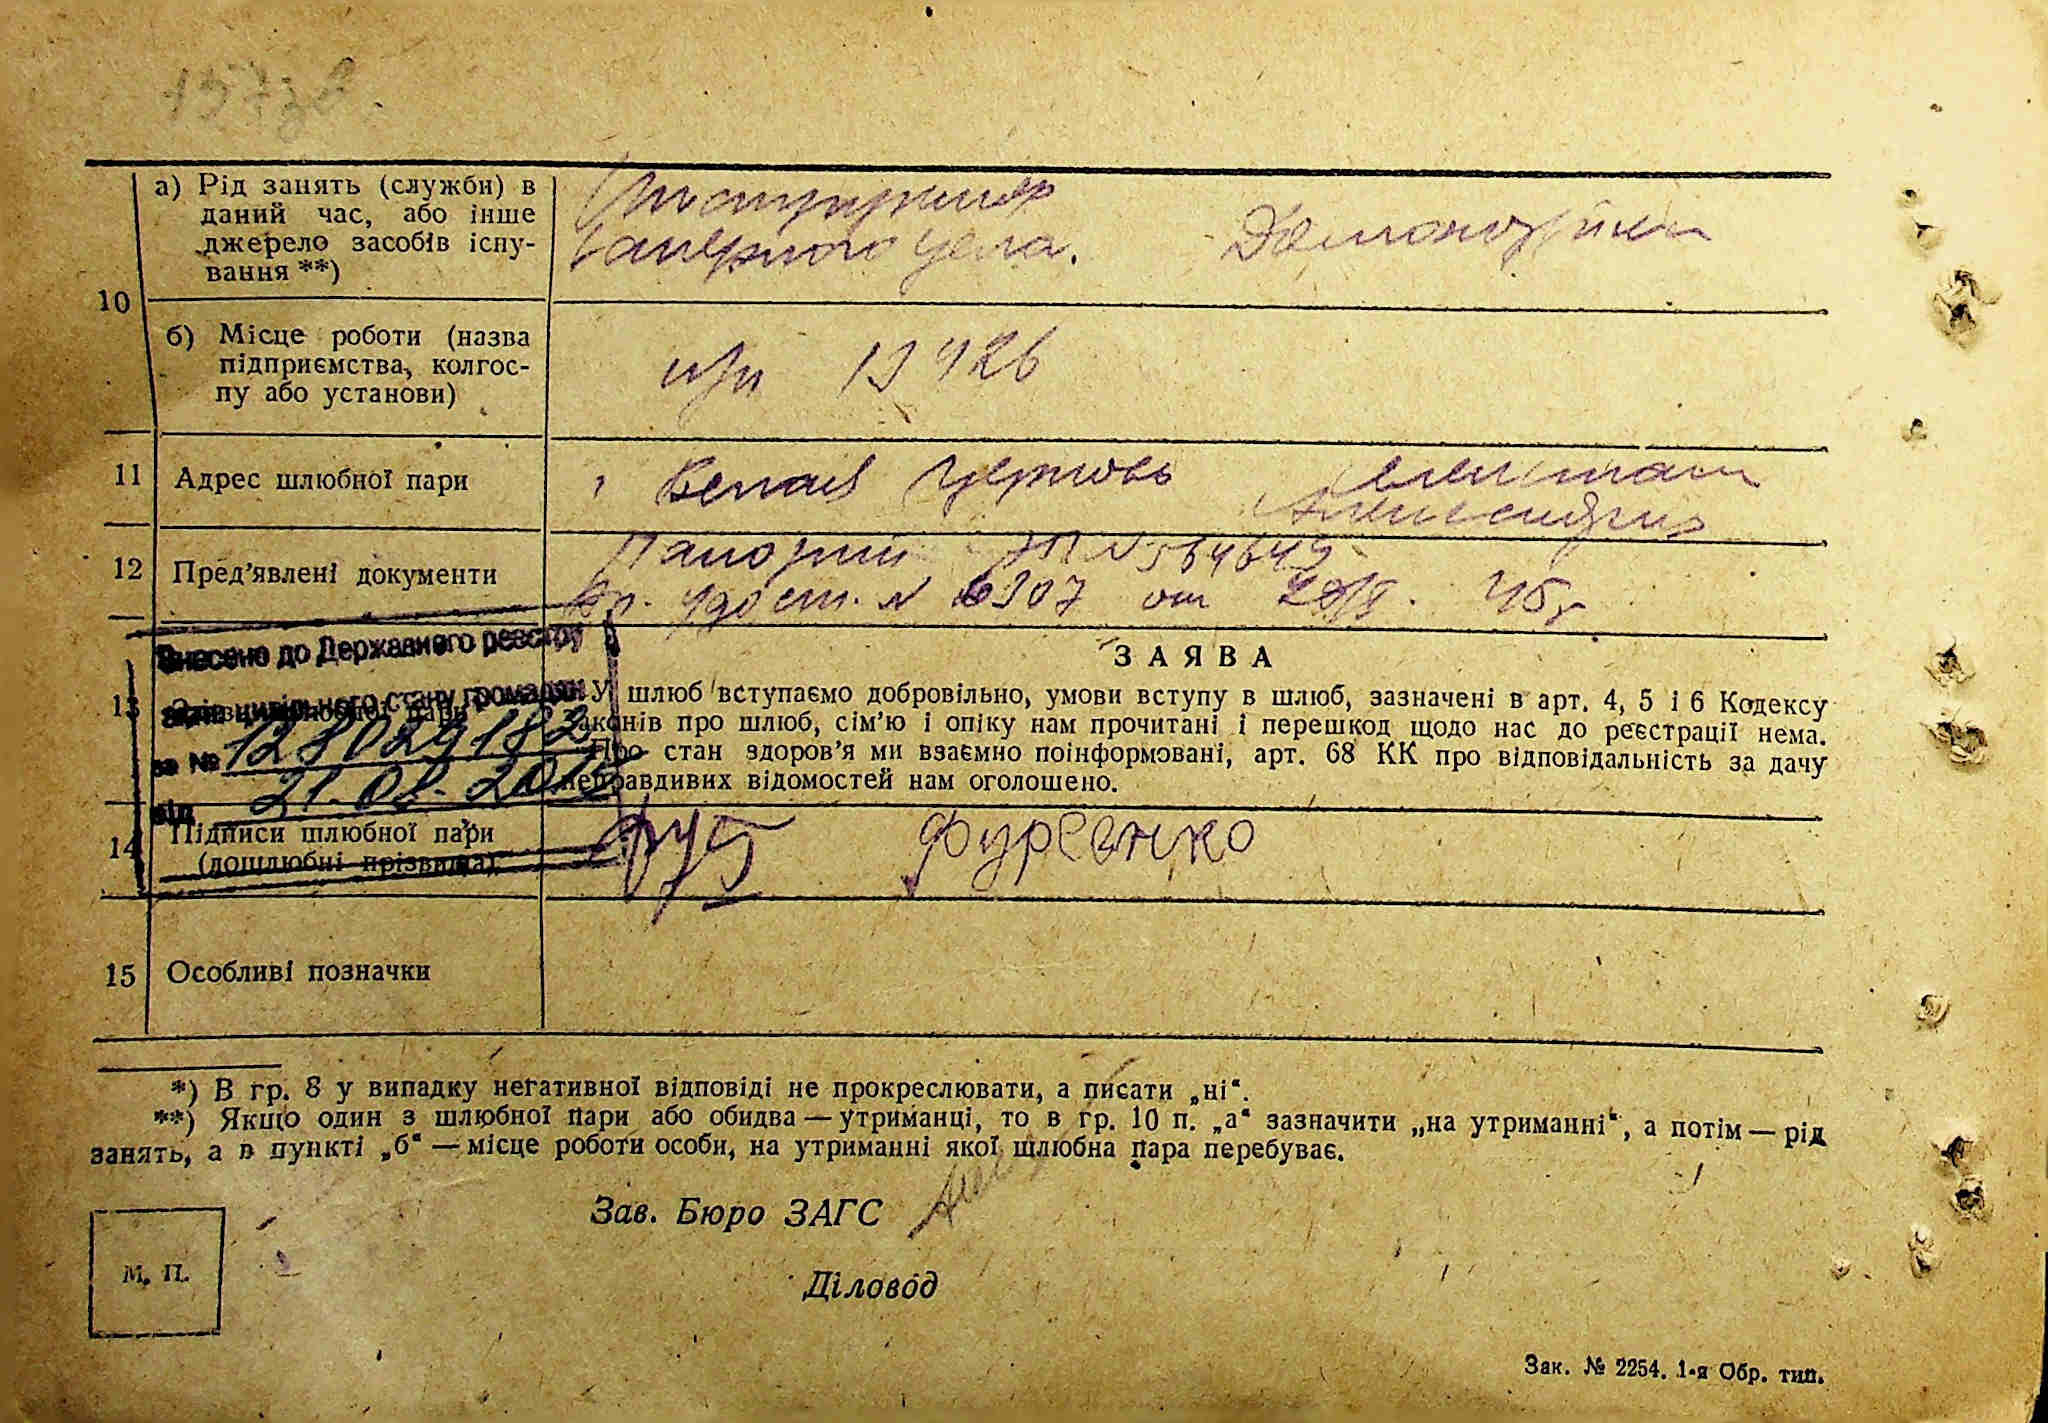 а) Рід занять (служби) в
даний час, або інше
джерело засобів існу-
вання **)
саперного дела.
10
б) Місце роботи (назва
підприємства, колгос-
пу або установи)
п/п 13426
11 Адрес шлюбної пари
Белая Церковь
Александрия
12 Пред'явлені документи
№ 564649
Вр. удост. № 6307 от 45 г
Внесено до Державного реєстру
актів цивільного стану громадян
за №
від 21.08.
13
ЗАЯВА
У шлюб вступаємо добровільно, умови вступу в шлюб, зазначені в арт. 4, 5 і 6 Кодексу
законів про шлюб, сім'ю і опіку нам прочитані і перешкод щодо нас до реєстрації нема.
Про стан здоров'я ми взаємно поінформовані, арт. 68 КК про відповідальність за дачу
неправдивих відомостей нам оголошено.
14 Підписи шлюбної пари
(дошлюбні прізвища)
Фурсенко
15 Особливі позначки
*) В гр. 8 у випадку негативної відповіді не прокреслювати, а писати „ні“.
**) Якщо один з шлюбної пари або обидва — утриманці, то в гр. 10 п. „а“ зазначити „на утриманні“, а потім — рід
занять, а в пункті „б“ — місце роботи особи, на утриманні якої шлюбна пара перебуває.
Зав. Бюро ЗАГС
М. П.
Діловод
Зак. № 2254. 1-я Обр. тип.